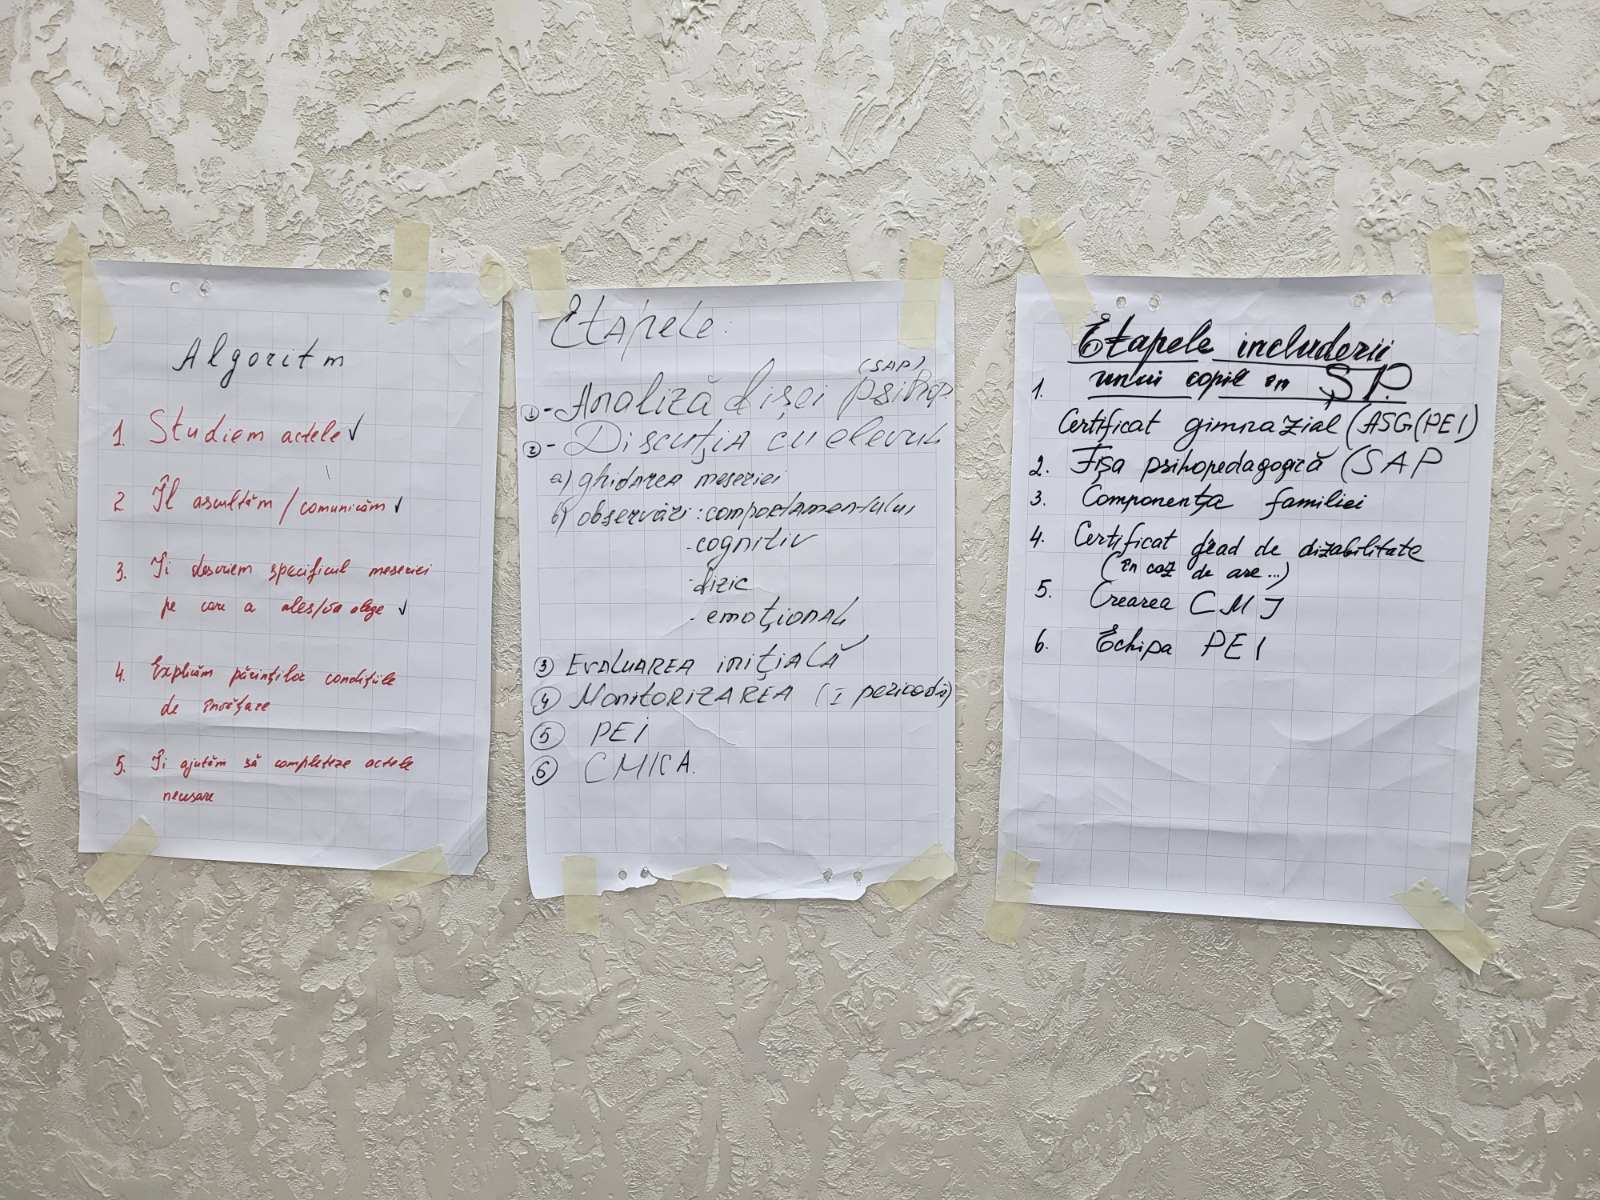 Algoritm
1. Studiem actele ✓
2 Îl ascultăm / comunicăm ✓
3. Îi descriem specificul meseriei
pe care a ales/va alege ✓
4. Explicăm părinților condițiile
de învățare
5. Îi ajutăm să completeze actele
necesare
Etapele:
(SAP)
① - Analiză fișei psihop.
② - Discuția cu elevul
a) ghidarea meseriei
b) observări : comportamentului
- cognitiv
- fizic
- emoțional
③ Evaluarea inițială
④ Monitorizarea (I perioadă)
⑤ PEI
⑥ CMICA.
Etapele includerii
unui copil în ȘP.
1.
Certificat gimnazial (ASG(PEI)
2. Fișa psihopedagogică (SAP
3. Componența familiei
4. Certificat grad de dizabilitate
(în caz de are...)
5. Crearea CMI
6. Echipa PEI